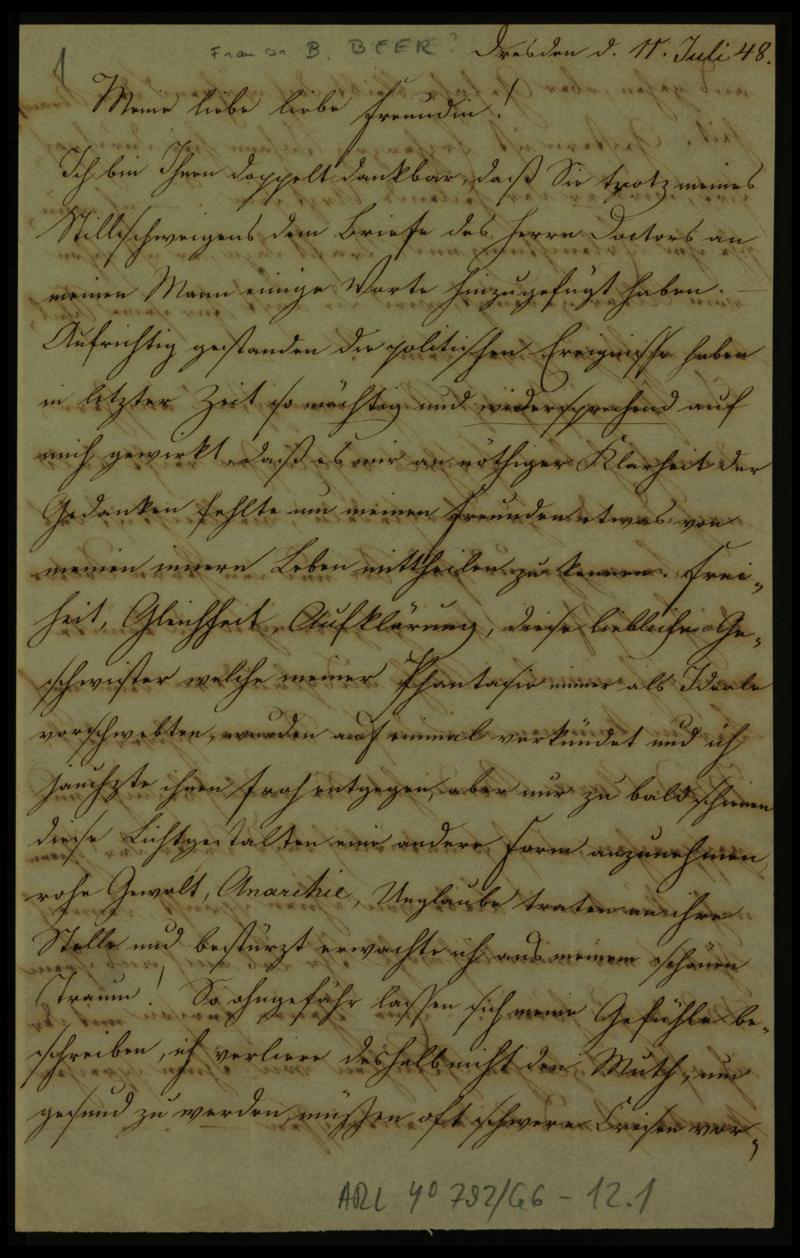 1
Frau Dr B. BEER?
Dresden d. 11. Juli 48.
Meine liebe liebe Freundin!
Ich bin Ihnen doppelt dankbar, daß Sie trotz meines
Stillschweigens dem Briefe des Herrn Doctors an
meinen Mann einige Worte hinzugefügt haben. –
Aufrichtig gestanden die politischen Ereignisse haben
in letzter Zeit so mächtig und widersprechend auf
mich gewirkt, daß es mir an nöthiger Klarheit der
Gedanken fehlte um meinen Freunden etwas von
meinem innern Leben mittheilen zu können. Frei„
heit, Gleichheit, Aufklärung, diese lieblichen Ge„
schwister welche meiner Phantasie immer als Ideale
vorschwebten, wurden auf einmal verkündet und ich
jauchzte ihnen froh entgegen, aber nur zu bald schienen
diese Lichtgestalten eine andere Form anzunehmen,
rohe Gewalt, Anarchie, Unglaube traten an ihre
Stelle und bestürzt erwachte ich aus meinem schönen
Traum! So ohngefähr lassen sich meine Gefühle be„
schreiben, ich verliere deshalb nicht den Muth, um
gesund zu werden, müssen oft schwere Crisen vor„
ARL 4° 792/G6 – 12.1